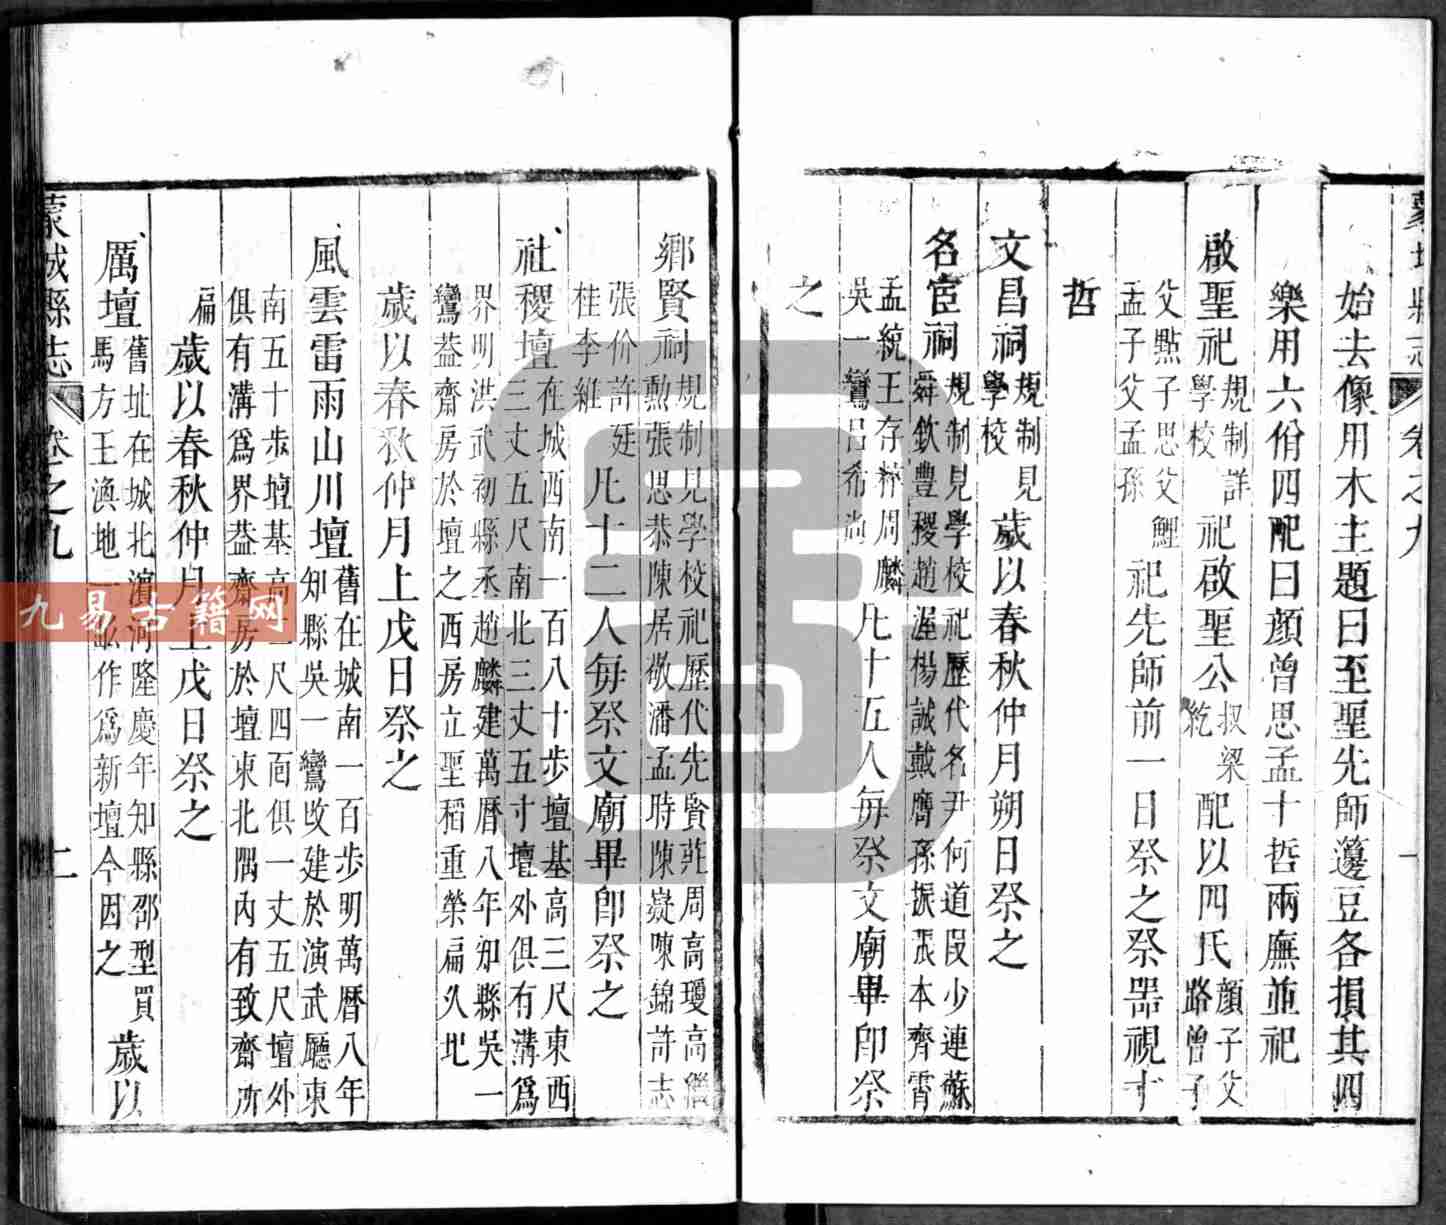 蒙城縣志 卷之九
始去像用木主題曰至聖先師籩豆各損其四
樂用六佾四配曰顏曾思孟十哲兩廡並祀
啟聖祀規制詳學校祀啟聖公叔梁紇配以四氏顏子父路曾子
父點子思父鯉孟子父孟孫祀先師前一日祭之祭器視十
哲
文昌祠規制見學校歲以春秋仲月朔日祭之
名宦祠規制見學校祀歷代名尹何道段少連蘇
舜欽豐稷趙渥楊誠戴膺孫振張本齊霄
孟統王存粹周麟吳一鸞呂希尚凡十五人每祭文廟畢即祭
之
鄉賢祠規制見學校祀歷代先賢莊周高瓊高繼
勲張思恭陳居敬潘孟時陳嶷陳錦許志
張价許廷桂李維凡十二人每祭文廟畢即祭之
社稷壇在城西南一百八十步壇基高三尺東西
三丈五尺南北三丈五寸壇外俱有溝爲
界明洪武初縣丞趙麟建萬曆八年知縣吳一
鸞葢齋房於壇之西房立聖稻重榮扁久圮
歲以春秋仲月上戊日祭之
風雲雷雨山川壇舊在城南一百步明萬曆八年
知縣吳一鸞改建於演武廳東
南五十步壇基高二尺四面俱一丈五尺壇外
俱有溝爲界葢齋房於壇東北隅內有致齋所
扁歲以春秋仲月上戊日祭之
厲壇舊址在城北濵河隆慶年知縣邵型買
馬方王漁地一畝作爲新壇今因之歲以
蒙城縣志 卷之九 二
九易古籍网